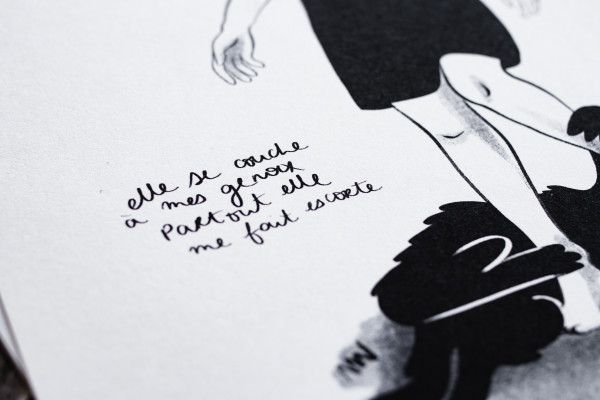 elle se couche
à mes genoux
partout elle
me fait escorte